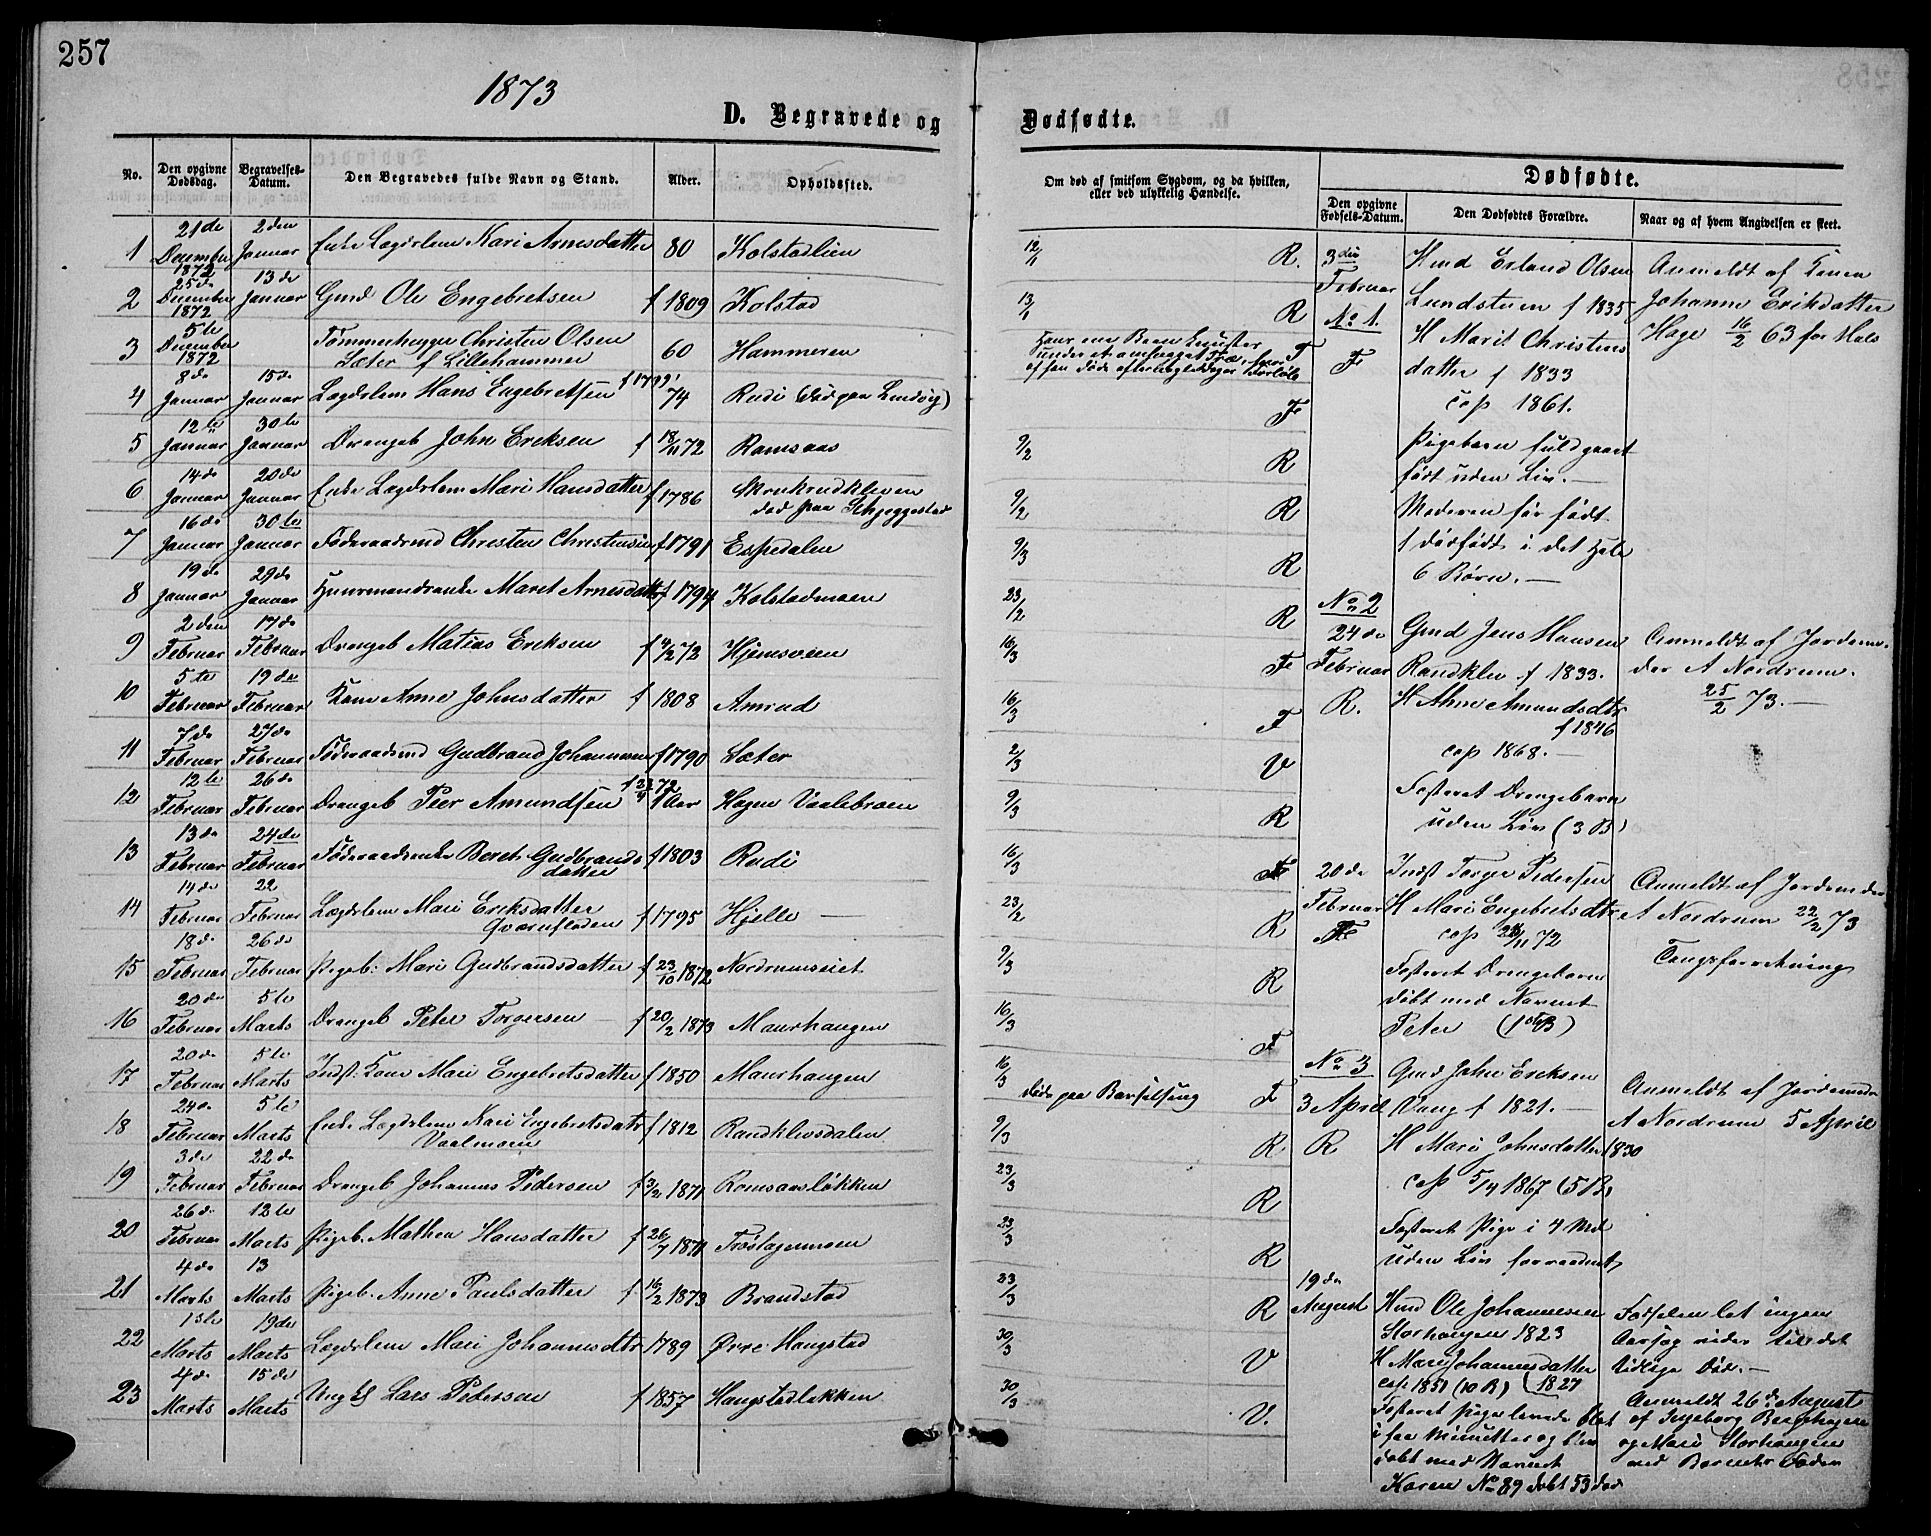 257
1873
D. Begravede og Dødfødte.
No. Den opgivne Dødsdag. Begravelses-Datum. Den Begravedes fulde Navn og Stand. Alder. Opholdssted.
Om død af smitsom Sygdom, og da hvilken, eller ved ulykkelig Hændelse.
Dødfødte.
Den opgivne Fødsels-Datum. Den Dødfødtes Forældre. Naar og af hvem Angivelsen er skeet.
1 21de December 1872 2den Januar Enke Lægdslem Kari Arnesdatter 80 Kolstadlien 12/1 R.
2 25de December 1872 13de Januar Gmd Ole Engebretsen f 1809 Kolstad 13/1 R
3 5te December 1872 Tømmerhugger Christen Olsen
Sæter f Lillehammer 60 Hammeren
4 8de Januar 15de Januar Lægdslem Hans Engebretsen f 1799 74 Rudi F
5 12te Januar 30te Januar Drengeb John Ericksen f 18/11 72 Romsaas 9/2 R
6 14de Januar 20de Januar Enke Lægdslem Mari Hansdatter f 1786
død paa Skjeggestad 9/2 R
7 16de Januar 30te Januar Føderaadsmd Christen Christensen f 1791 Espedalen 9/3 R
8 19de Januar 29de Januar Huusmandsenke Maret Arnesdatter f 1794 Kolstadmoen 23/2 R
9 2den Februar 17de Februar Drengeb Matias Ericksen f 4/2 72 Hjemsveen 16/3 F
10 5te Februar 19de Februar Kone Anne Johnsdatter f 1808 Amrud 16/3 F
11 7de Februar 27de Februar Føderaadsmd Gudbrand Johannesen f 1790 Sæter 2/3 V
12 12te Februar 26de Februar Drengeb Peer Amundsen 1 Aar Hagen Vaalebroen 9/3 R
13 13de Februar 24de Februar Føderaadsenke Beret Gudbrands
datter f 1803 Rudi 16/3 F
14 14de Februar 22 Februar Lægdslem Mari Ericksdatter
Qværnfloden f 1795 Hjelle 23/2 R
15 18de Februar 26de Februar Pigeb: Mari Gudbrandsdatter f 23/10 1872 Nordrumseiet 9/3 R
16 20de Februar 5te Marts Drengeb Peter Torgersen f 20/2 1873 Maurhaugen 16/3 F
17 20de Februar 5te Marts Indst: Kone Mari Engebretsdatter f 1850 Maurhaugen 16/3 døde paa Barselseng F
18 24de Februar 5te Marts Enke Lægdslem Kari Engebretsdatr
Vaalmoen f 1812 Randklevsdalen 9/3 R
19 3de Februar 22de Februar Drengeb Johannes Pedersen f 3/2 1871 Romsaasløkken 23/3 R
20 26de Februar 12te Marts Pigeb. Mathea Hansdatter f 26/7 1871 Frøslagermoen 23/3 R
21 4de Marts 13 Marts Pigeb. Anne Paulsdatter f 16/2 1873 Brandstad 23/3 R
22 Marts 19de Marts Lægdslem Mari Johannesdtr 1789 Øvre Haugstad 30/3 V
23 4de Marts 15de Marts Ungk Lars Petersen f 1857 Haugstadløkken 30/3 V.
3die Februar
No 1.
F
Hmd Erland Olsen
Lundsteen f 1835
H Marit Christens
datter f 1833
cop 1861.
Pigebarn fuldgaaet
født uden Liv.
Moderen før født
1 dødfødt i det Hele
6 Børn.
Anmeldt af Konen
Johanne Eriksdatter
Hage 16/2
No 2
24de Februar
R.
Gmd Jens Hansen
Randklev f 1833.
H Anne Amundsdtr
f 1846
cop 1868.
Fosteret Drengebarn
uden Liv (3 B)
Anmeldt af Jordemo-
der A Nordrum.
25/2 73.
20de Februar
F
Indst Torger Pedersen
H Mari Engebretsdtr
cop 72
Fosteret Drengebarn
døbt med Navnet
Peter
Anmeldt af Jordemoder
A Nordrum 22/2 73
Tangforretning
No 3
3 April
R
Gmd John Ericksen
Vang f 1821.
H Mari Johnsdatter 1830
cop 5/4 1867 (5 B)
Fosteret Pige i 4 Md
uden Liv forraadnet
Anmeldt af Jordemodr
A Nordrum 5 April
19de August
Hmd Ole Johannesen
Storhaugen 1823
H Mari Johannesdatter
cop 1851 (10 B) 1827
Fosteret Pige levede blot
i faa Minutter og blev
døbt med Navnet
Karen No 89
Fødselen let ingen
Aarsag vides til det
tidlige Død.
Anmeldt 26de August
af Ingeborg
og Mari Storhaugen
med Barnets Fader